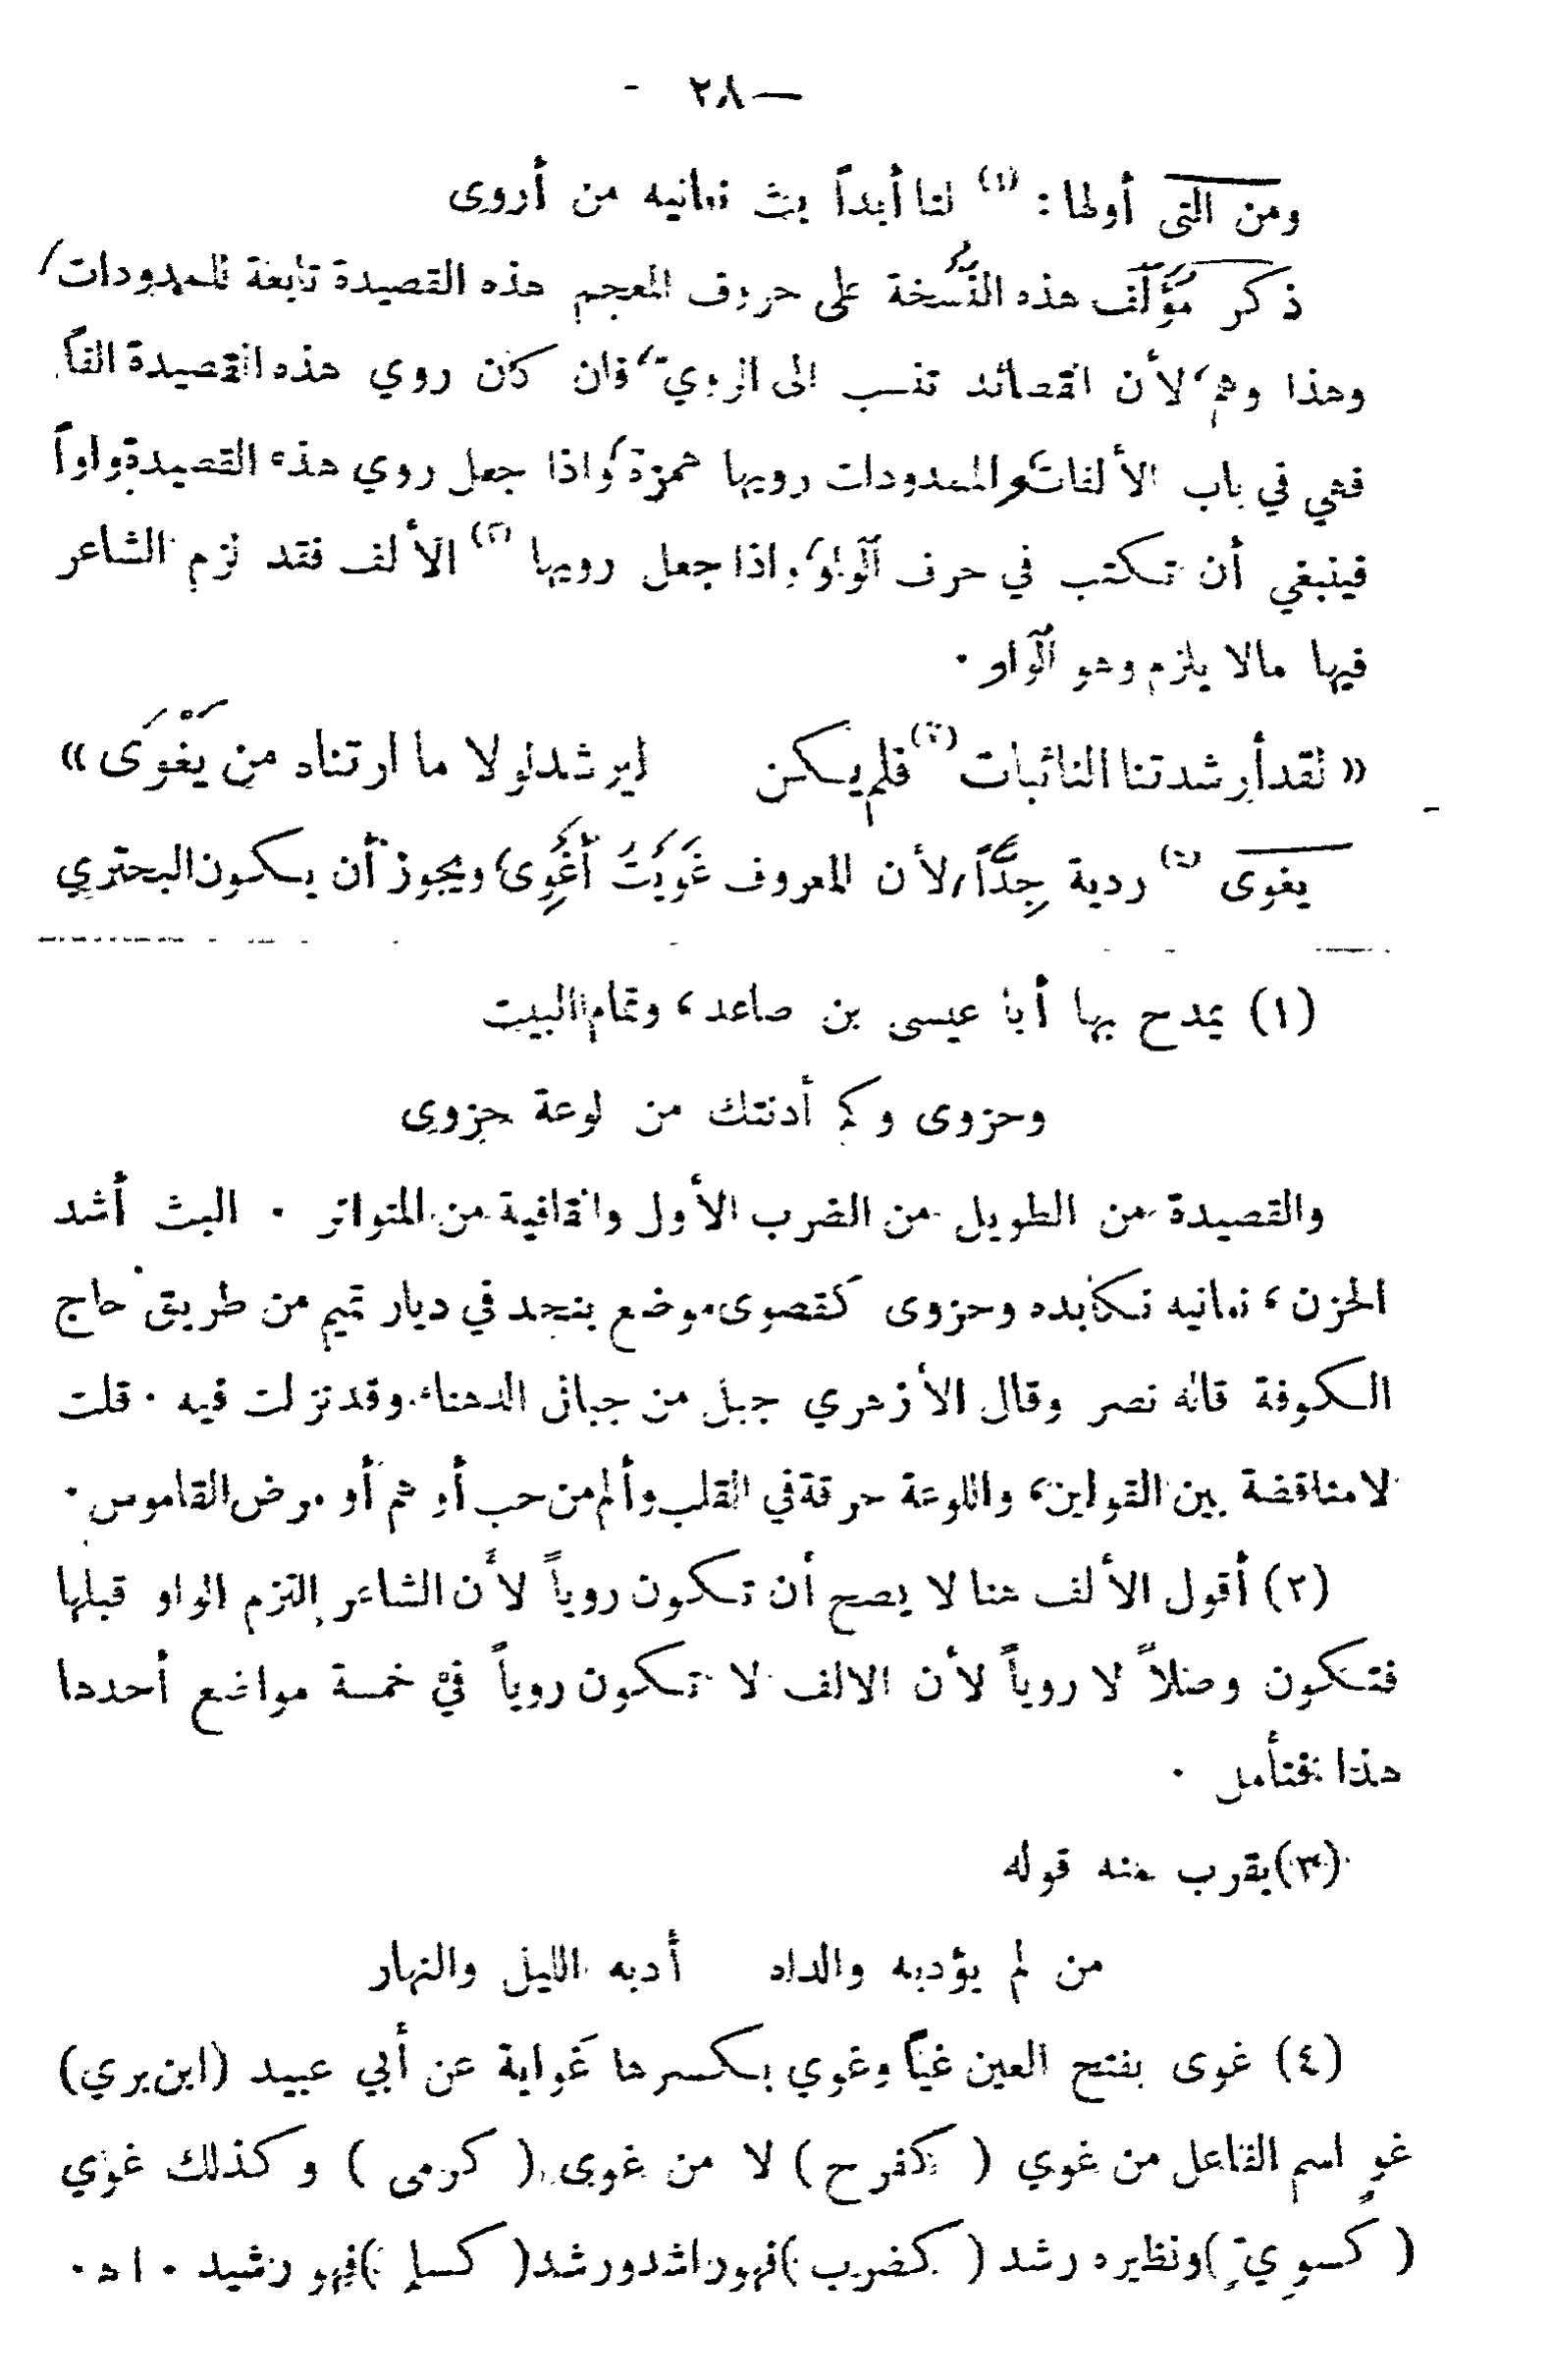 — ٢٨ -
ومن التي أولها : (١) لنا أبداً بث نعانيه من أروى
ذكر مُؤَلِّف هذه النُّسخة على حروف المعجم هذه القصيدة تابعة للممدودات،
وهذا وهم، لأن القصائد تنسب الى الرويّ، فان كان روي هذه القصيدة الفاً
فهي في باب الألفات، والممدودات رويها همزة، واذا جعل روي هذه القصيدة واواً
فينبغي أن تكتب في حرف الواو، واذا جعل رويها (٢) الألف فقد لزم الشاعر
فيها مالا يلزم وهو الواو .
« لقد أرشدتنا النائبات (٣) فلم يكن ليرشد لولا ما ارتناه من يَغْوَى »
يغوى (٤) ردية جِدًّا، لأن المعروف غَوَيْتُ أَغْوِى، ويجوز أن يكون البحتري
(١) يمدح بها أبا عيسى بن صاعد ، وتمام البيت
وحزوى وكم أدنتك من لوعة حزوى
والقصيدة من الطويل من الضرب الأول والقافية من المتواتر . البث أشد
الحزن ، نعانيه نكابده وحزوى كقصوى موضع بنجد في ديار تميم من طريق حاج
الكوفة قاله نصر وقال الأزهري جبل من جبال الدهناء وقد نزلت فيه . قلت
لا مناقضة بين القولين ، واللوعة حرقة في القلب وألم من حب أو هم أو مرض القاموس .
(٢) أقول الألف هنا لا يصح أن تكون روياً لأن الشاعر التزم الواو قبلها
فتكون وصلاً لا روياً لأن الالف لا تكون روياً في خمسة مواضع أحدها
هذا فتأمل .
(٣) يقرب منه قوله
من لم يؤدبه والداه أدبه الليل والنهار
(٤) غوى بفتح العين غيّاً وغوي بكسرها غَواية عن أبي عبيد (ابن بري)
غوٍ اسم الفاعل من غوي ( كفرح ) لا من غوى ( كرمى ) وكذلك غوي
( كسويّ ) ونظيره رشد ( كضرب ) فهو راشد ورشد ( كسلم ) فهو رشيد . اه .